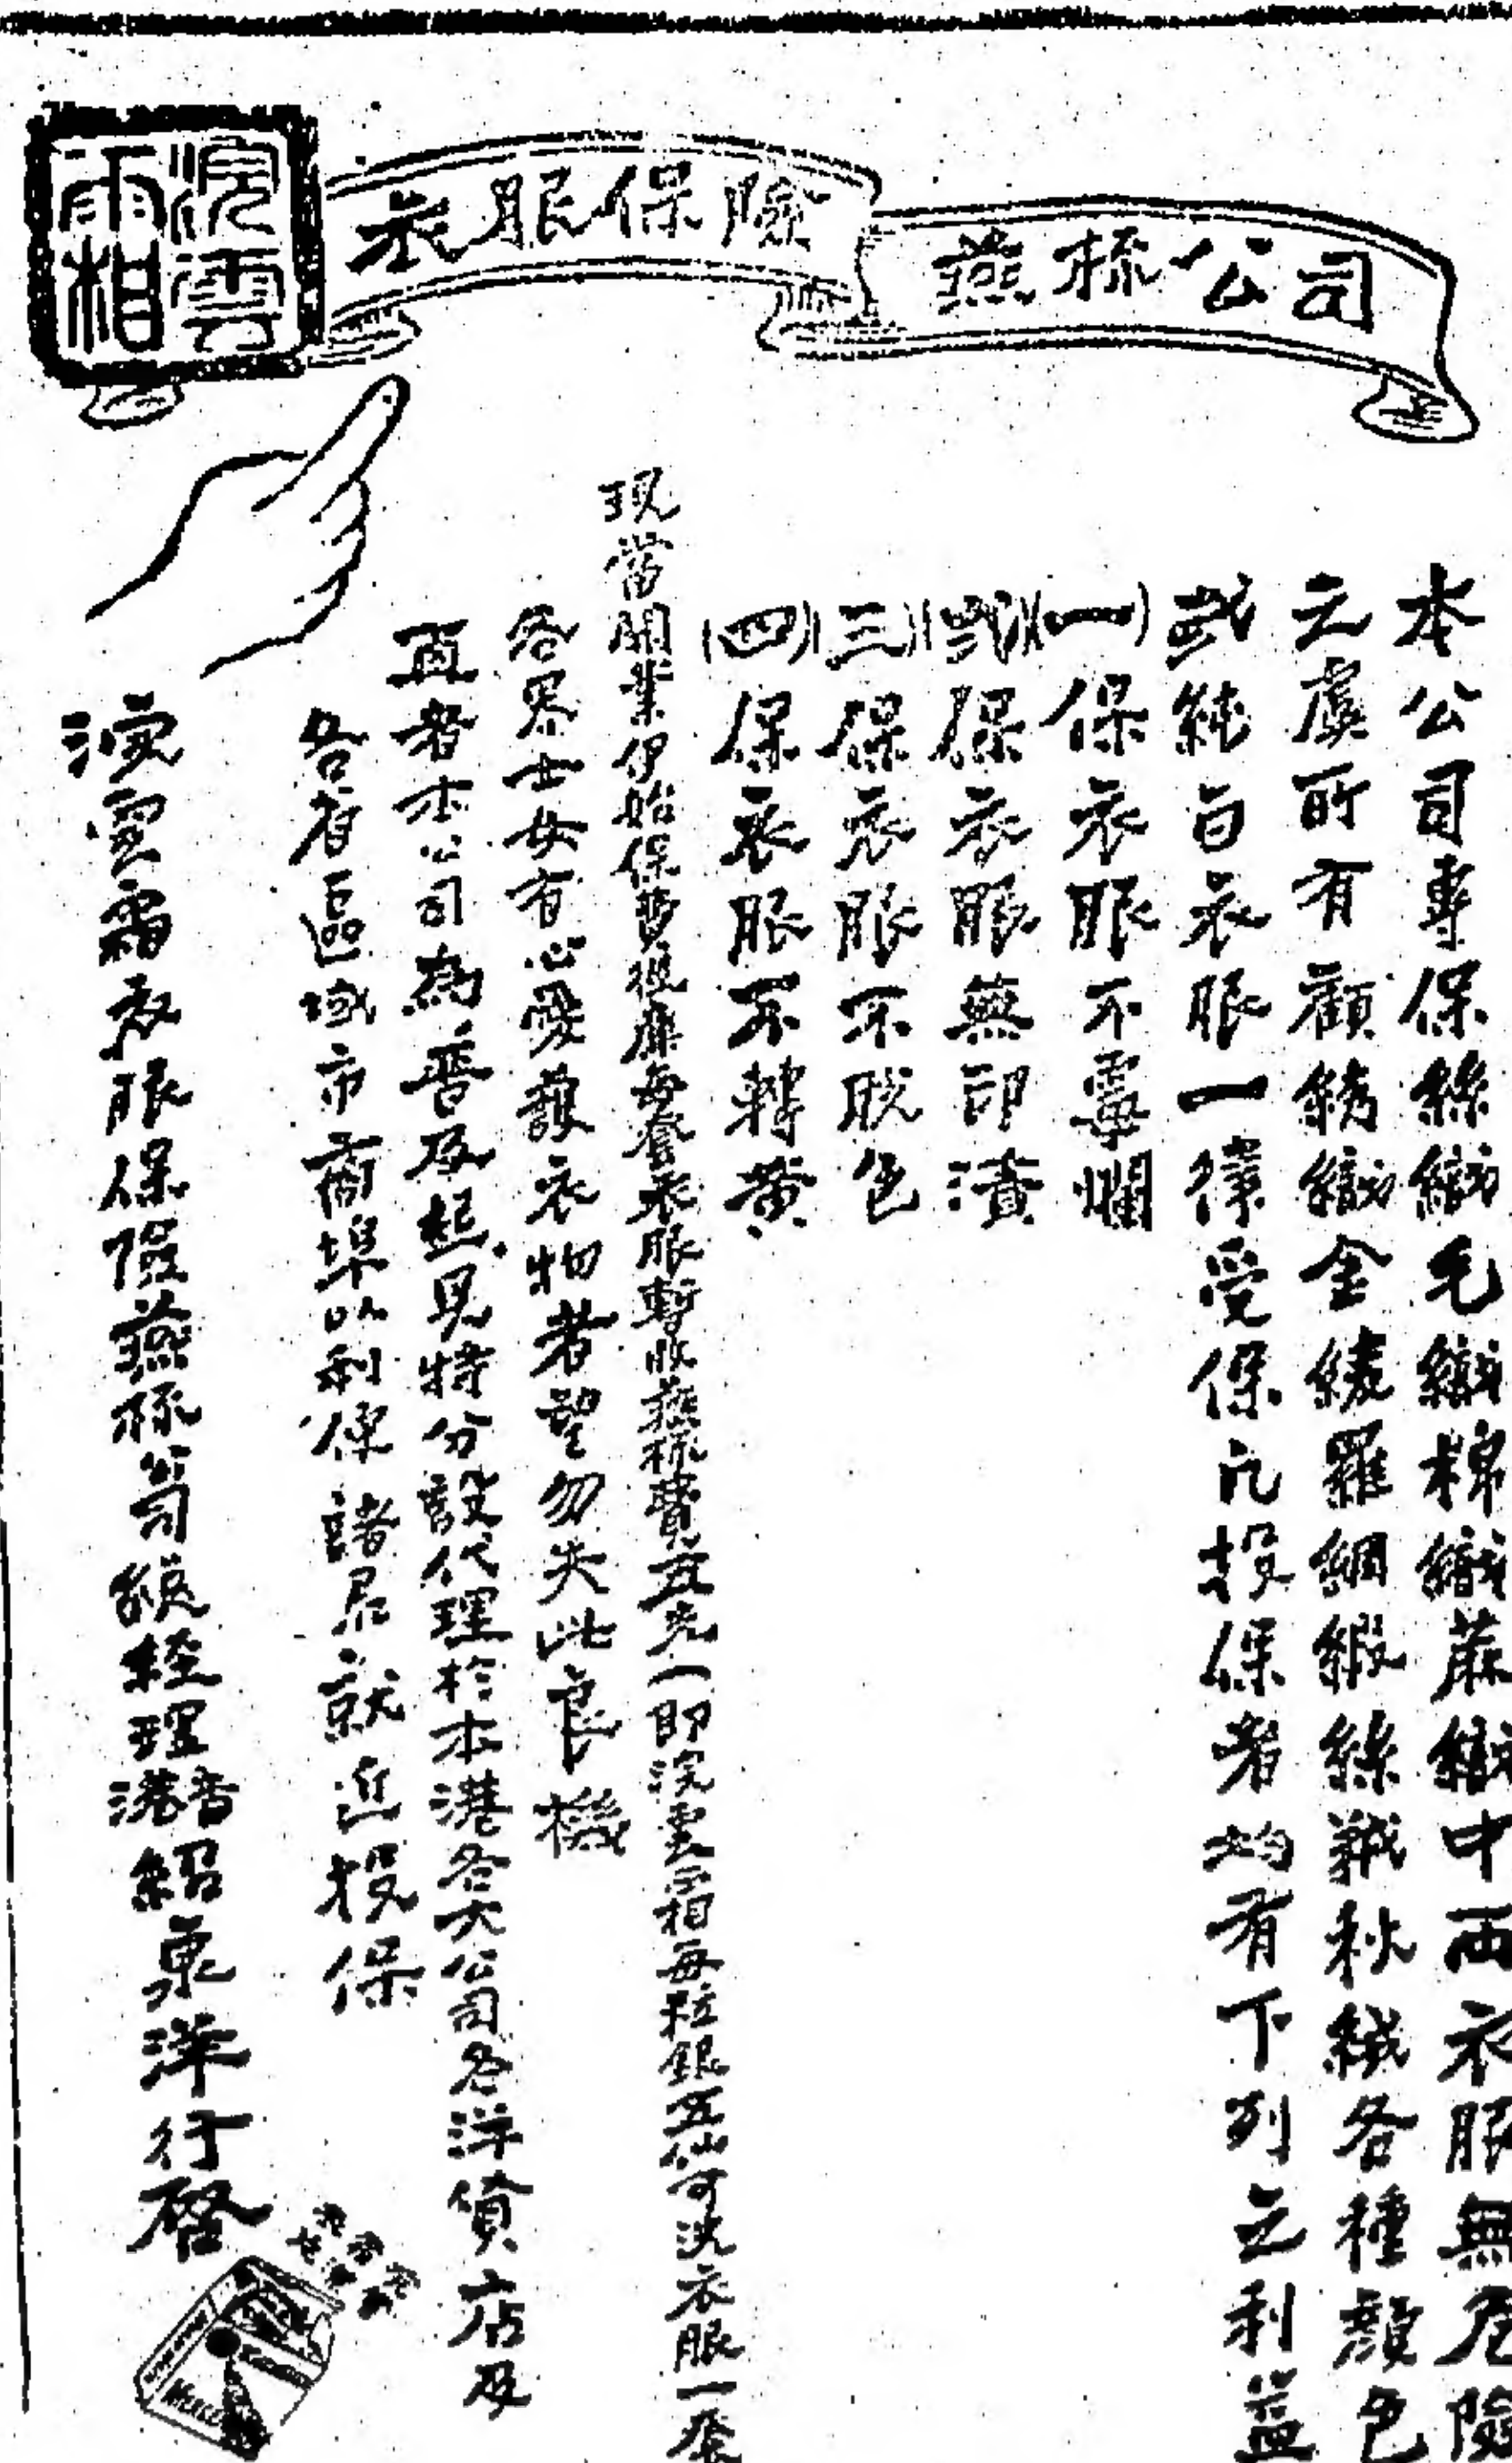 浣雲霜
衣服保險
燕梳公司
本公司專保絲織毛織棉織蔴織中西衣服無危險
之虞所有顧繡織金綾羅綢緞絲絨秋絨各種顏色
或純白衣服一律受保凡投保者均有下列之利益
(一)保衣服不霉爛
(弍)保衣服無印漬
(三)保衣服不脫色
(四)保衣服不轉黃
現當開業伊始保費極廉每套衣服暫收燕梳費五先(即浣雲霜每粒銀五仙可洗衣服一套
各界士女有心愛護衣物者望勿失此良機
再者本公司為普及起見特分設代理於本港各大公司各洋貨店及
各省區域市商埠以利便諸君就近投保
浣雲霜衣服保險燕梳公司總經理香港紹東洋行啓